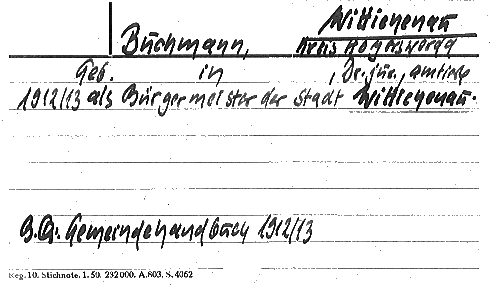 Wittichenau
Buchmann, Kreis Hoyerswerda
Geb. in , Dr. jur., amtierte
1912/13 als Bürgermeister der Stadt Wittichenau.
B.Q. Gemeindehandbuch 1912/13
Reg. 10. Stichnote. 1. 50. 232000. A.803. S. 4062